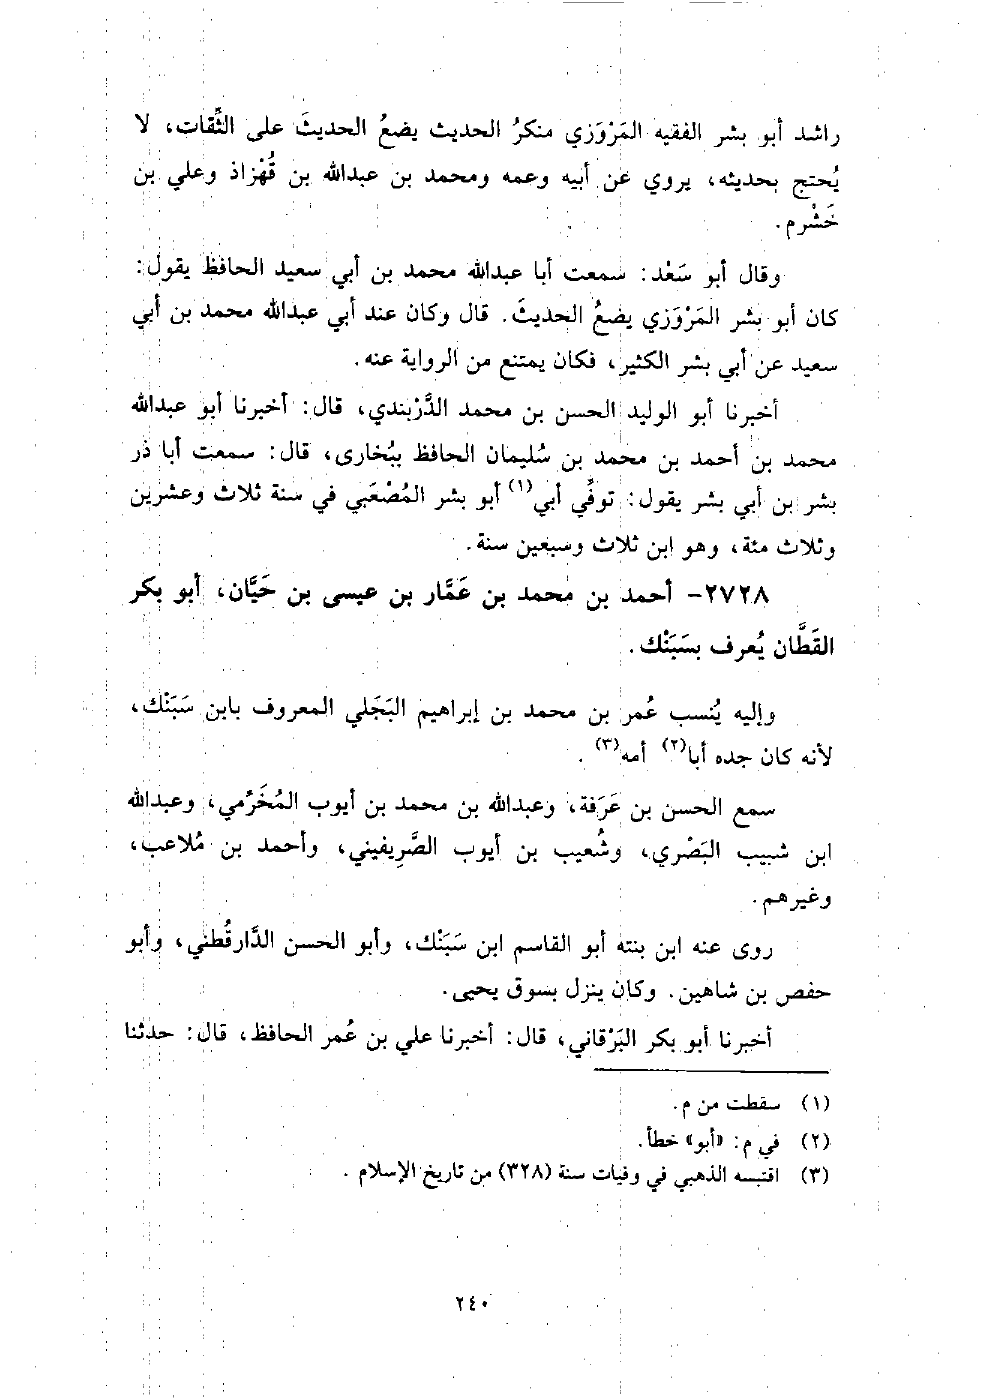 راشد أبو بشر الفقيه المَرْوَزي منكرُ الحديث يضعُ الحديثَ على الثِّقات، لا
يُحتج بحديثه، يروي عن أبيه وعمه ومحمد بن عبدالله بن قُهْزاذ وعلي بن
خَشْرم.
وقال أبو سَعْد: سمعت أبا عبدالله محمد بن أبي سعيد الحافظ يقول:
كان أبو بشر المَرْوَزي يضعُ الحديثَ. قال وكان عند أبي عبدالله محمد بن أبي
سعيد عن أبي بشر الكثير، فكان يمتنع من الرواية عنه.
أخبرنا أبو الوليد الحسن بن محمد الدَّرْبندي، قال: أخبرنا أبو عبدالله
محمد بن أحمد بن محمد بن سُليمان الحافظ ببُخارى، قال: سمعت أبا ذر
بشر بن أبي بشر يقول: توفِّي أبي(١) أبو بشر المُصْعَبي في سنة ثلاث وعشرين
وثلاث مئة، وهو ابن ثلاث وسبعين سنة.
٢٧٢٨- أحمد بن محمد بن عَمَّار بن عيسى بن حَيَّان، أبو بكر
القَطَّان يُعرف بسَبَنْك.
وإليه يُنسب عُمر بن محمد بن إبراهيم البَجَلي المعروف بابن سَبَنْك،
لأنه كان جده أبا(٢) أمه(٣).
سمع الحسن بن عَرَفة، وعبدالله بن محمد بن أيوب المُخَرِّمي، وعبدالله
ابن شبيب البَصْري، وشُعيب بن أيوب الصَّريفيني، وأحمد بن مُلاعب،
وغيرهم.
روى عنه ابن بنته أبو القاسم ابن سَبَنْك، وأبو الحسن الدَّارقُطني، وأبو
حفص بن شاهين. وكان ينزل بسوق يحيى.
أخبرنا أبو بكر البَرْقاني، قال: أخبرنا علي بن عُمر الحافظ، قال: حدثنا
(١) سقطت من م.
(٢) في م: «أبو» خطأ.
(٣) اقتبسه الذهبي في وفيات سنة (٣٢٨) من تاريخ الإسلام.
٢٤٠